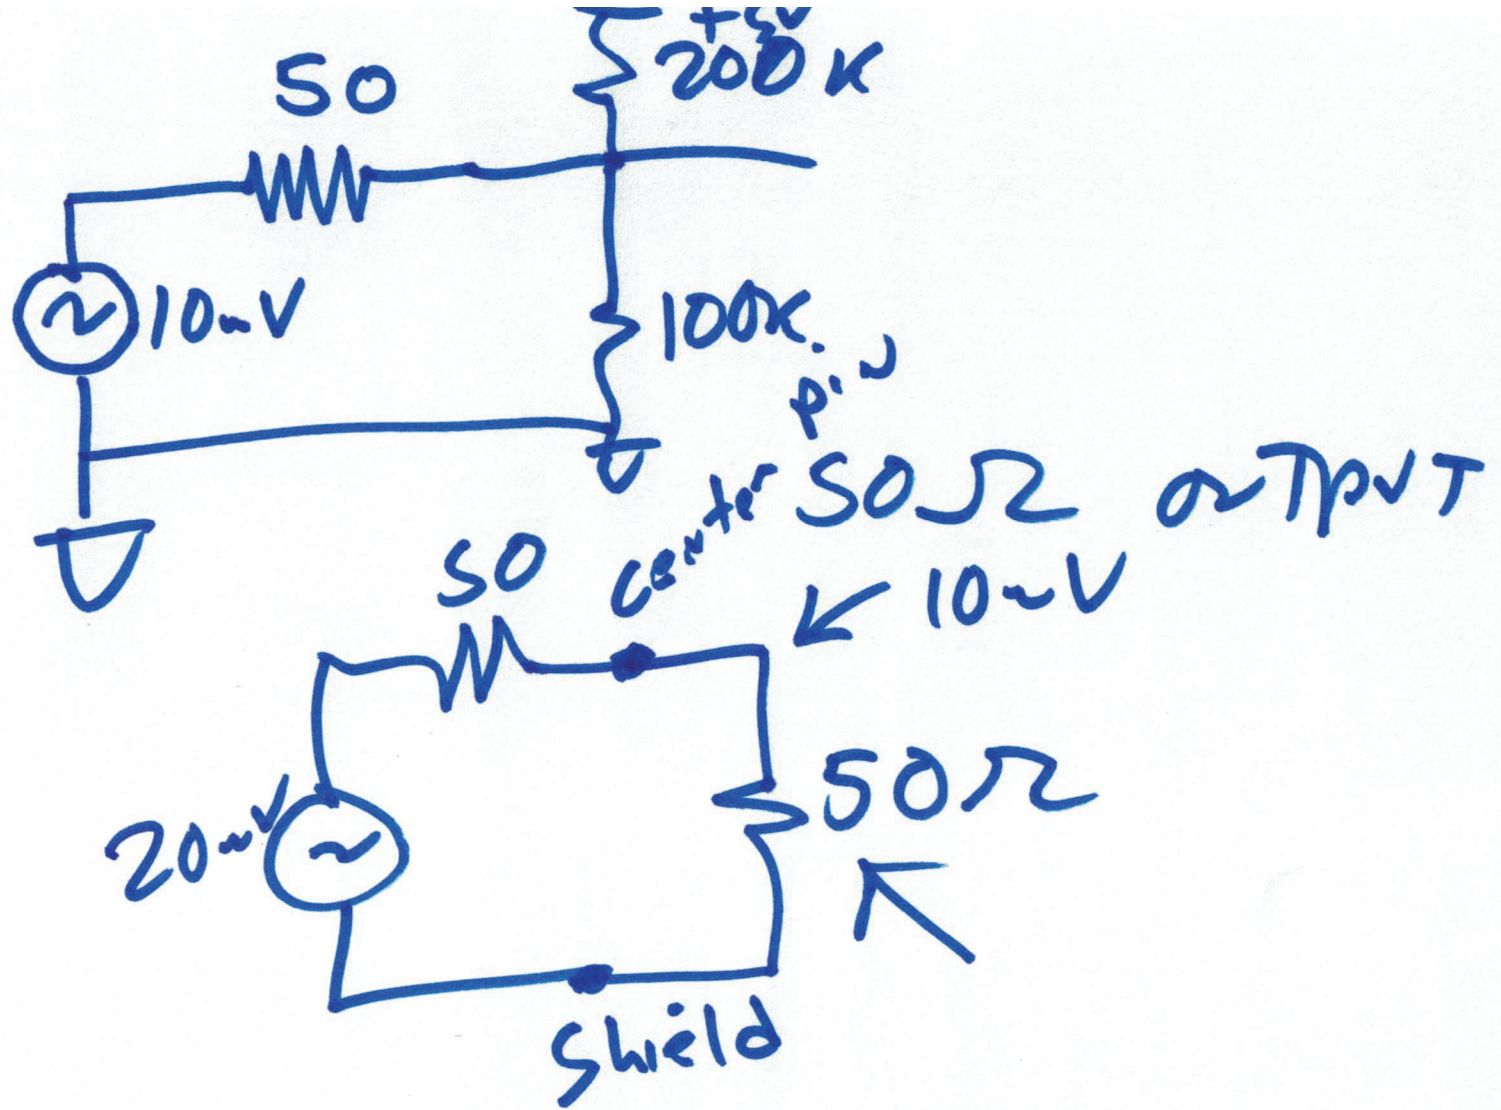 +5V
50
200K
10mV
100K
center pin
50Ω OUTPUT
50
10mV
20mV
50Ω
Shield